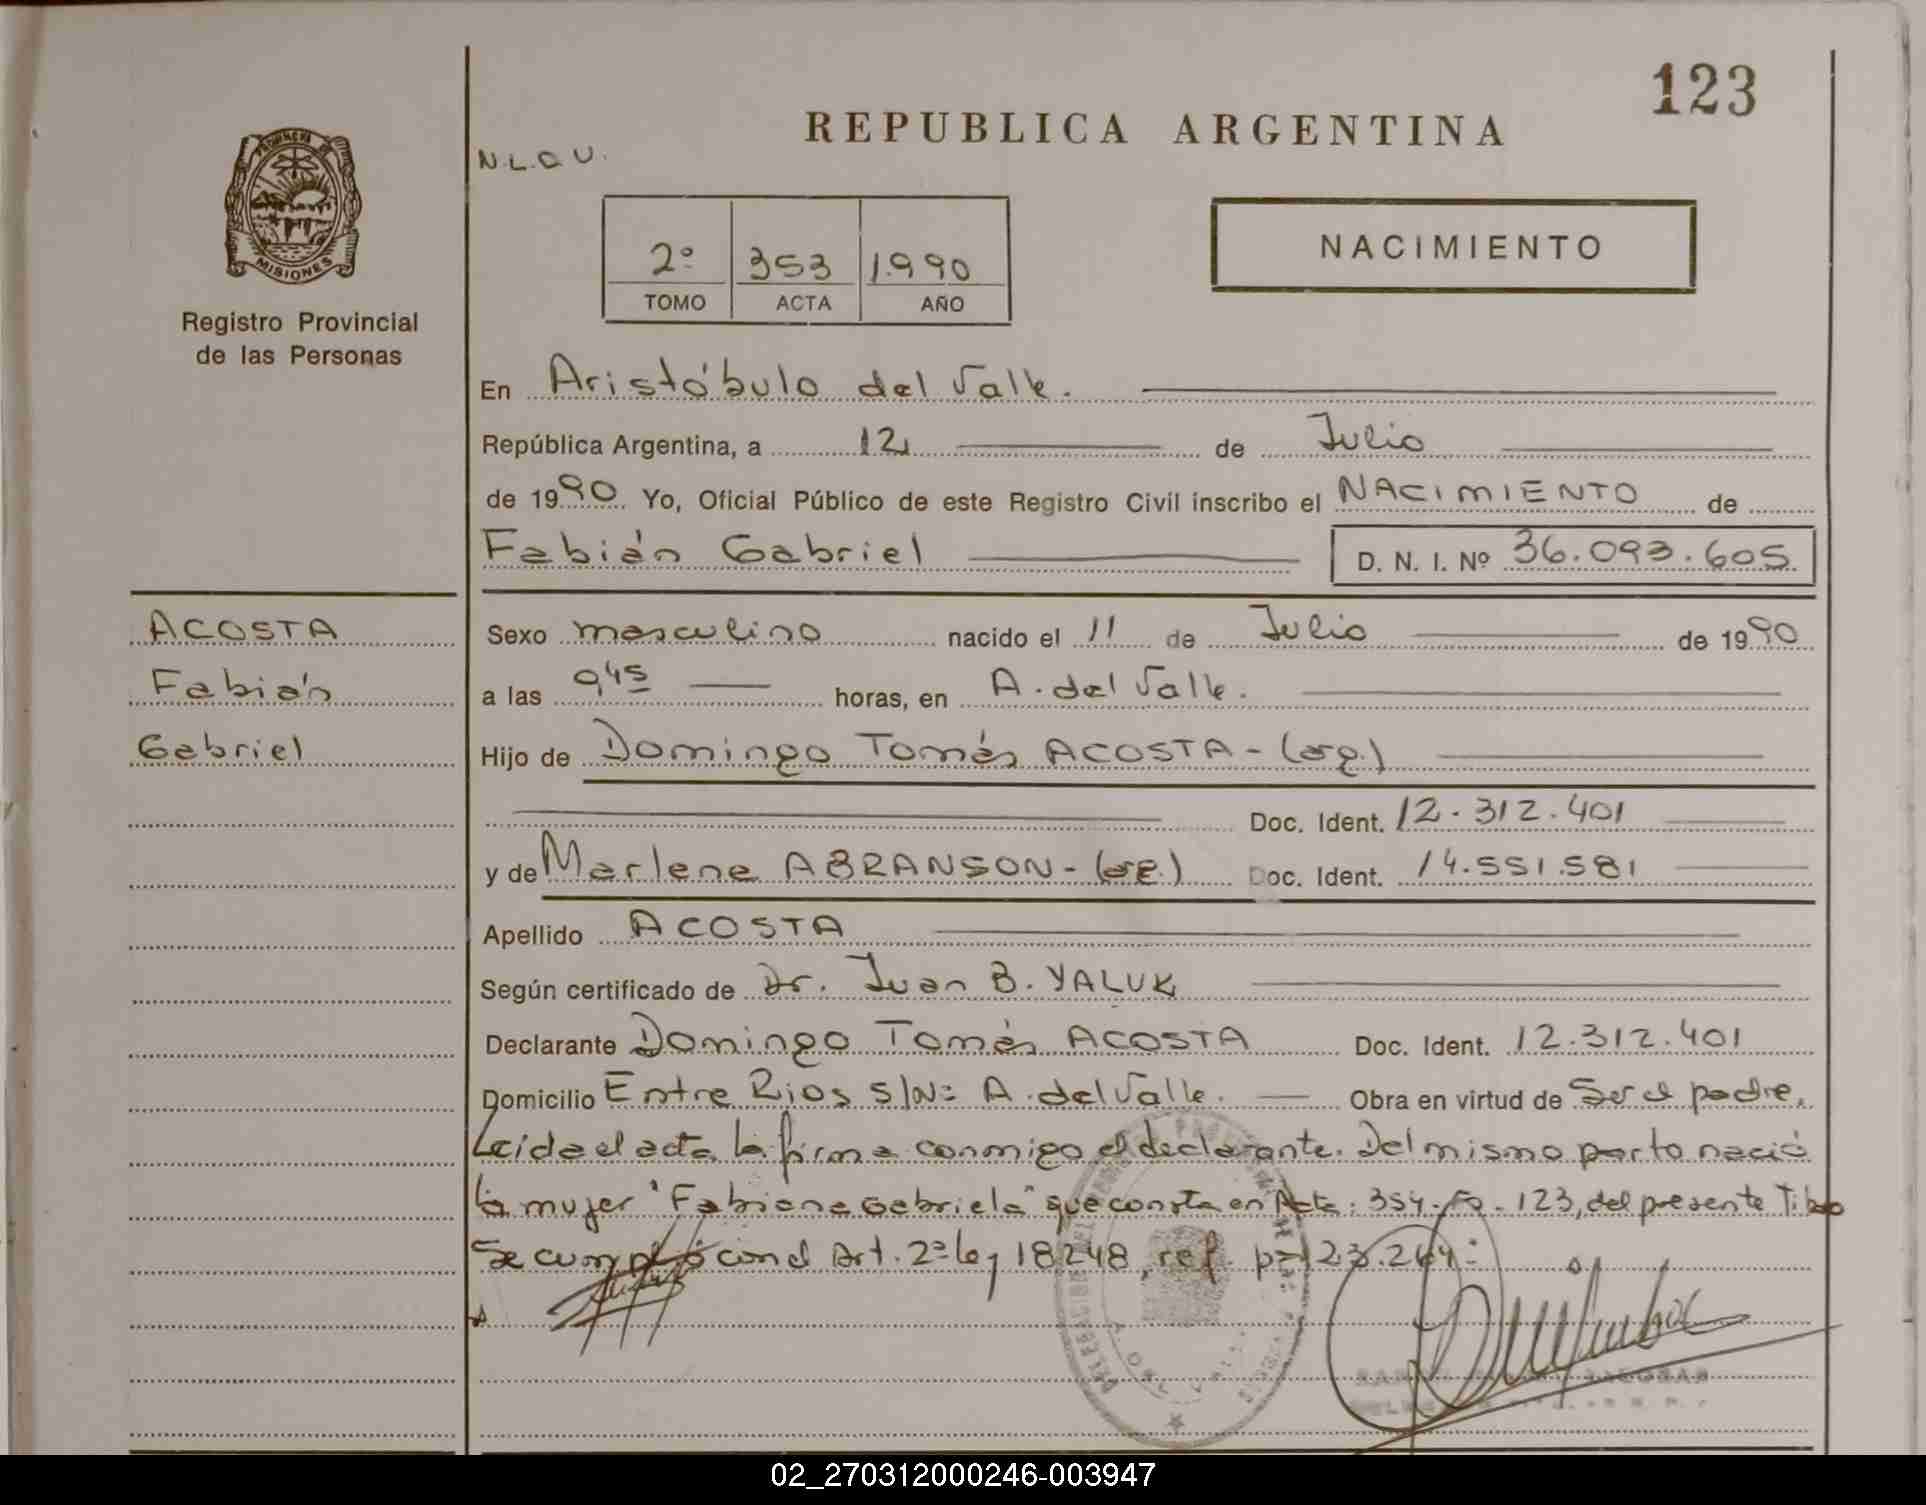 123
REPUBLICA ARGENTINA
PROVINCIA DE
MISIONES
Registro Provincial
de las Personas
2º 353 1.990
TOMO ACTA AÑO
NACIMIENTO
En Aristóbulo del Valle.
República Argentina, a 12 de Julio
de 1990. Yo, Oficial Público de este Registro Civil inscribo el NACIMIENTO de
Fabián Gabriel D. N. I. Nº 36.093.605
ACOSTA
Fabián
Gabriel
Sexo masculino nacido el 11 de Julio de 1990
a las 9,45 horas, en A. del Valle.
Hijo de Domingo Tomás ACOSTA - (arg.)
Doc. Ident. 12.312.401
y de Marlene ABRANSON - (arg.) Doc. Ident. 14.551.581
Apellido ACOSTA
Según certificado de Dr. Juan B. YALUK
Declarante Domingo Tomás ACOSTA Doc. Ident. 12.312.401
Domicilio Entre Rios S/Nº A. del Valle. Obra en virtud de Ser el padre.
Leida el acta la firma conmigo el declarante. Del mismo parto nació
la mujer "Fabiana Gabriela" que consta en Acta: 354. Fº. 123, del presente
Se cumplió con el Art. 2º ley 18248, ref. 23.264
02_270312000246-003947